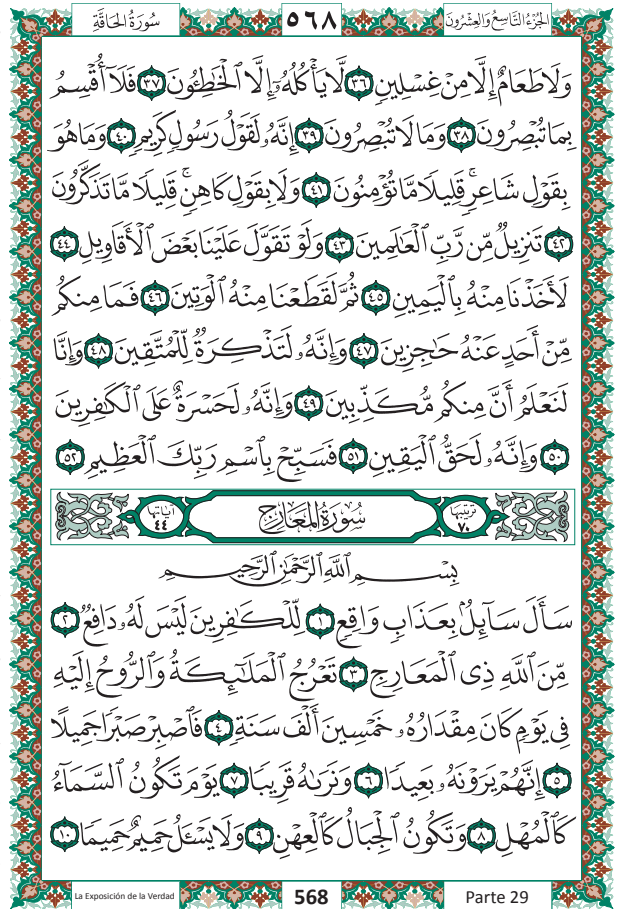 الجُزْءُ التَّاسِعُ وَالعِشْرُونَ ٥٦٨ سُورَةُ الحَاقَّةِ
وَلَا طَعَامٌ إِلَّا مِنْ غِسْلِينٍ ٣٦ لَّا يَأْكُلُهُۥٓ إِلَّا ٱلْخَٰطِـُٔونَ ٣٧ فَلَآ أُقْسِمُ
بِمَا تُبْصِرُونَ ٣٨ وَمَا لَا تُبْصِرُونَ ٣٩ إِنَّهُۥ لَقَوْلُ رَسُولٍ كَرِيمٍ ٤٠ وَمَا هُوَ
بِقَوْلِ شَاعِرٍۚ قَلِيلًا مَّا تُؤْمِنُونَ ٤١ وَلَا بِقَوْلِ كَاهِنٍۚ قَلِيلًا مَّا تَذَكَّرُونَ
٤٢ تَنزِيلٌ مِّن رَّبِّ ٱلْعَٰلَمِينَ ٤٣ وَلَوْ تَقَوَّلَ عَلَيْنَا بَعْضَ ٱلْأَقَاوِيلِ ٤٤
لَأَخَذْنَا مِنْهُ بِٱلْيَمِينِ ٤٥ ثُمَّ لَقَطَعْنَا مِنْهُ ٱلْوَتِينَ ٤٦ فَمَا مِنكُم
مِّنْ أَحَدٍ عَنْهُ حَٰجِزِينَ ٤٧ وَإِنَّهُۥ لَتَذْكِرَةٌ لِّلْمُتَّقِينَ ٤٨ وَإِنَّا
لَنَعْلَمُ أَنَّ مِنكُم مُّكَذِّبِينَ ٤٩ وَإِنَّهُۥ لَحَسْرَةٌ عَلَى ٱلْكَٰفِرِينَ
٥٠ وَإِنَّهُۥ لَحَقُّ ٱلْيَقِينِ ٥١ فَسَبِّحْ بِٱسْمِ رَبِّكَ ٱلْعَظِيمِ ٥٢
تَرْتِيبُهَا ٧٠ سُورَةُ المَعَارِجِ آيَاتُهَا ٤٤
بِسْمِ ٱللَّهِ ٱلرَّحْمَٰنِ ٱلرَّحِيمِ
سَأَلَ سَآئِلٌۢ بِعَذَابٍ وَاقِعٍ ١ لِّلْكَٰفِرِينَ لَيْسَ لَهُۥ دَافِعٌ ٢
مِّنَ ٱللَّهِ ذِى ٱلْمَعَارِجِ ٣ تَعْرُجُ ٱلْمَلَٰٓئِكَةُ وَٱلرُّوحُ إِلَيْهِ
فِى يَوْمٍ كَانَ مِقْدَارُهُۥ خَمْسِينَ أَلْفَ سَنَةٍ ٤ فَٱصْبِرْ صَبْرًا جَمِيلًا
٥ إِنَّهُمْ يَرَوْنَهُۥ بَعِيدًا ٦ وَنَرَىٰهُ قَرِيبًا ٧ يَوْمَ تَكُونُ ٱلسَّمَآءُ
كَٱلْمُهْلِ ٨ وَتَكُونُ ٱلْجِبَالُ كَٱلْعِهْنِ ٩ وَلَا يَسْـَٔلُ حَمِيمٌ حَمِيمًا ١٠
La Exposición de la Verdad 568 Parte 29